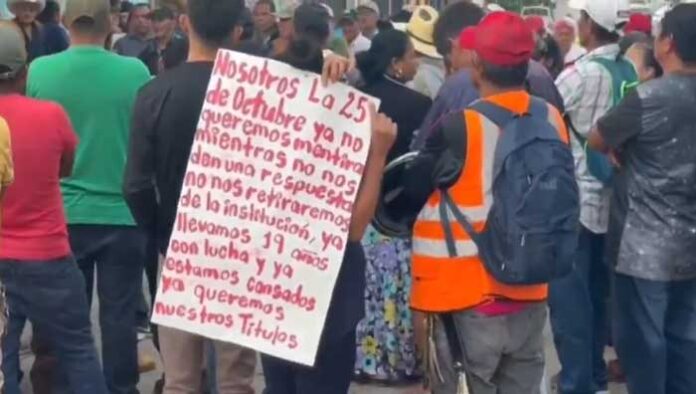 Nosotros La 25
de Octubre ya no
queremos mentira
mientras no nos
den una respuesta
no nos retiraremos
de la institución, ya
llevamos 19 años
con lucha y ya
estamos cansados
ya queremos
nuestros Titulos